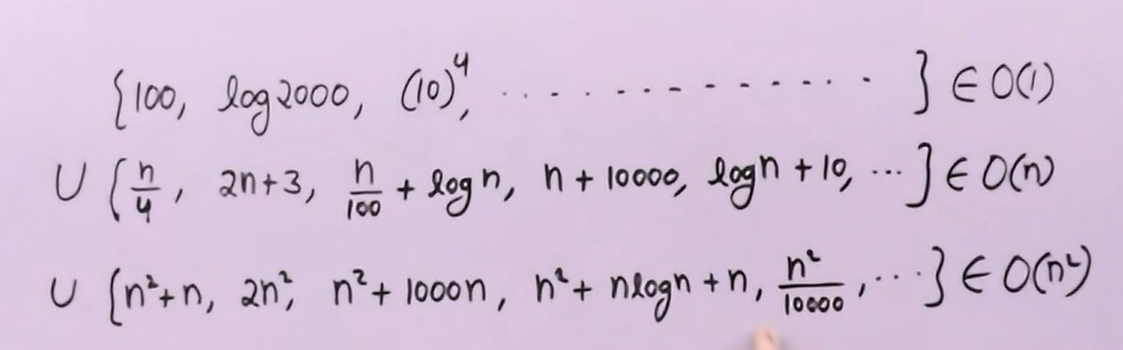 {100, log2000, (10)⁴, . . . . . . . . . . . . . . } ∈ O(1)
∪ {n/4, 2n+3, n/100 + logn, n + 10000, logn + 10, ... } ∈ O(n)
∪ {n²+n, 2n², n²+ 1000n, n²+ nlogn + n, n²/10000, ... } ∈ O(n²)